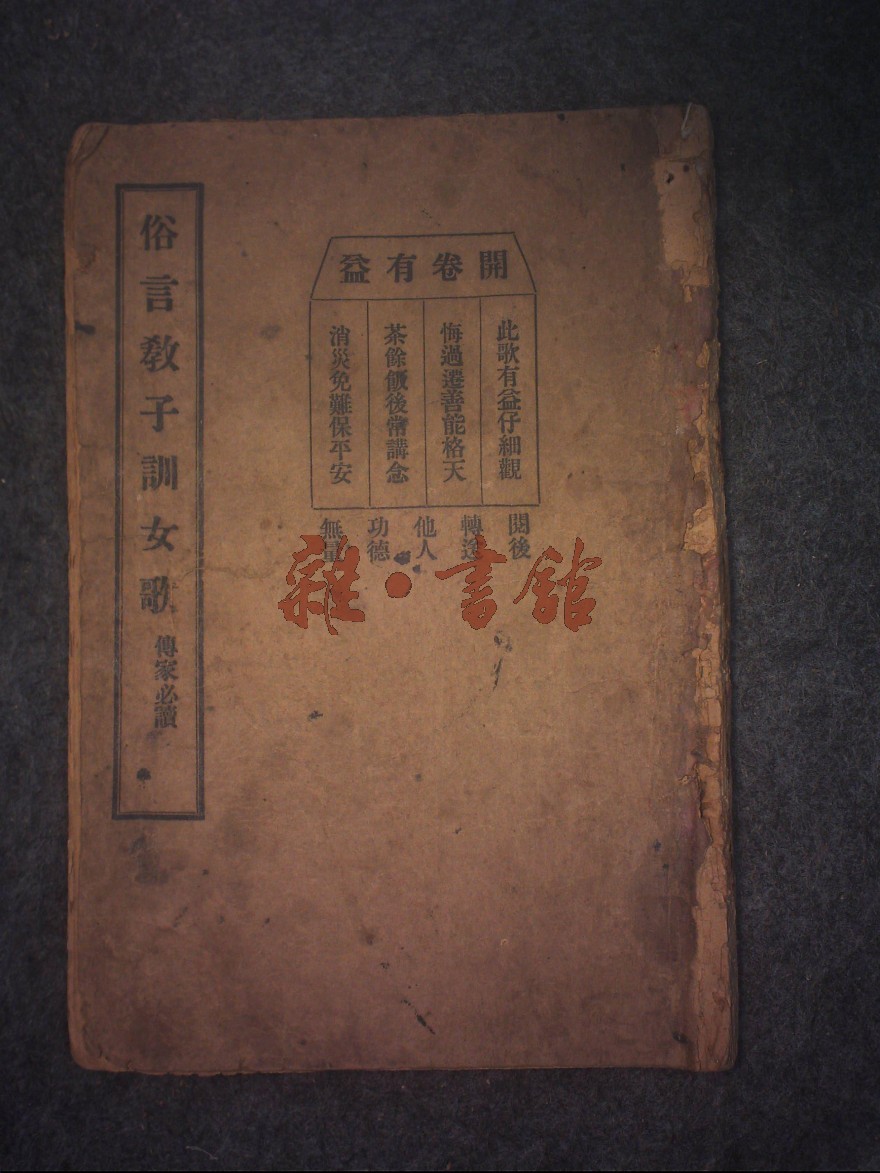 開卷有益
此歌有益仔細觀
悔過遷善能格天
茶餘飯後常講念
消災免難保平安
閱後
轉送
他人
功德
無量
俗言教子訓女歌 傳家必讀
雜·書館